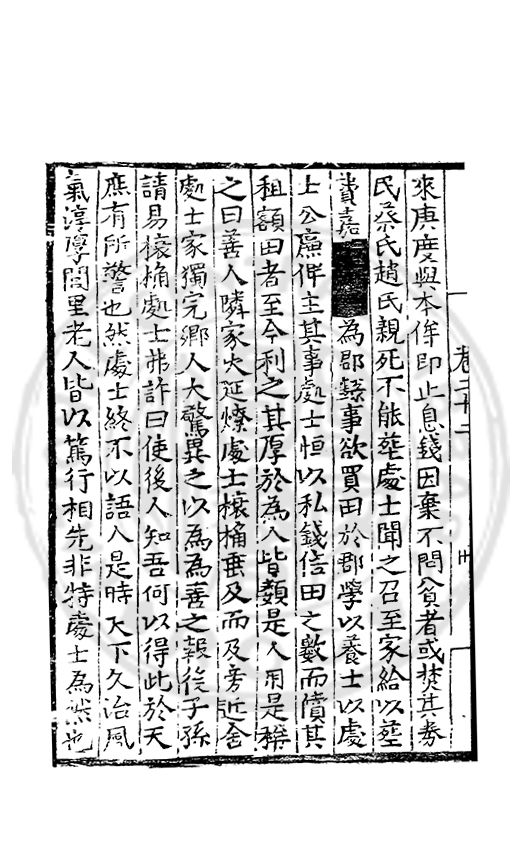 來庾度與本侔即止息錢因棄不問貧者或焚其券
民蔡氏趙氏親死不能葬處士聞之召至家給以葬
費嘉為郡錄事欲買田於郡學以養士以處
士公廉俾主其事處士恒以私錢倍田之數而隤其
租額田者至今利之其厚於為人皆類是人用是稱
之曰善人隣家火延燎處士榱桷垂及而及旁近舍
處士家獨完鄉人大驚異之以為為善之報後子孫
請易榱桷處士弗許曰使後人知吾何以得此於天
庶有所警也然處士終不以語人是時天下久治風
氣淳厚閭里老人皆以篤行相先非特處士為然也
卷二十二